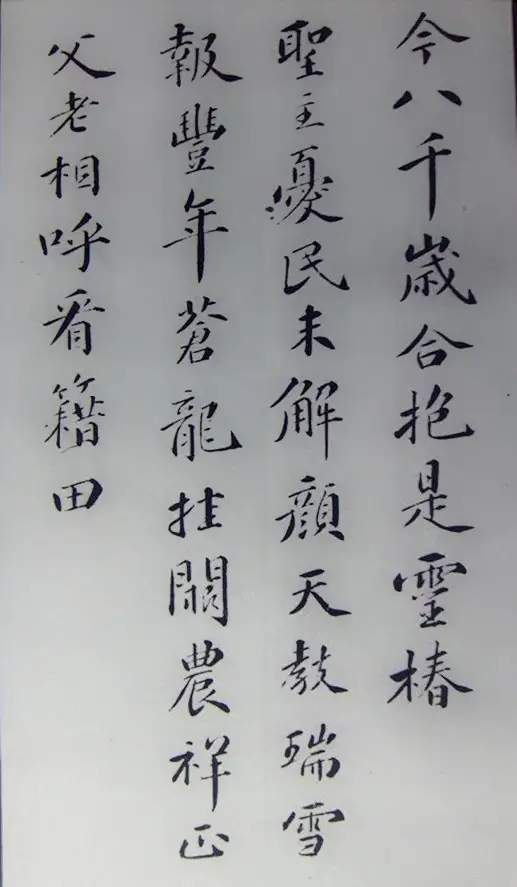 今八千歲合抱是靈椿
聖主憂民未解顏天教瑞雪
報豐年蒼龍挂闕農祥正
父老相呼看籍田